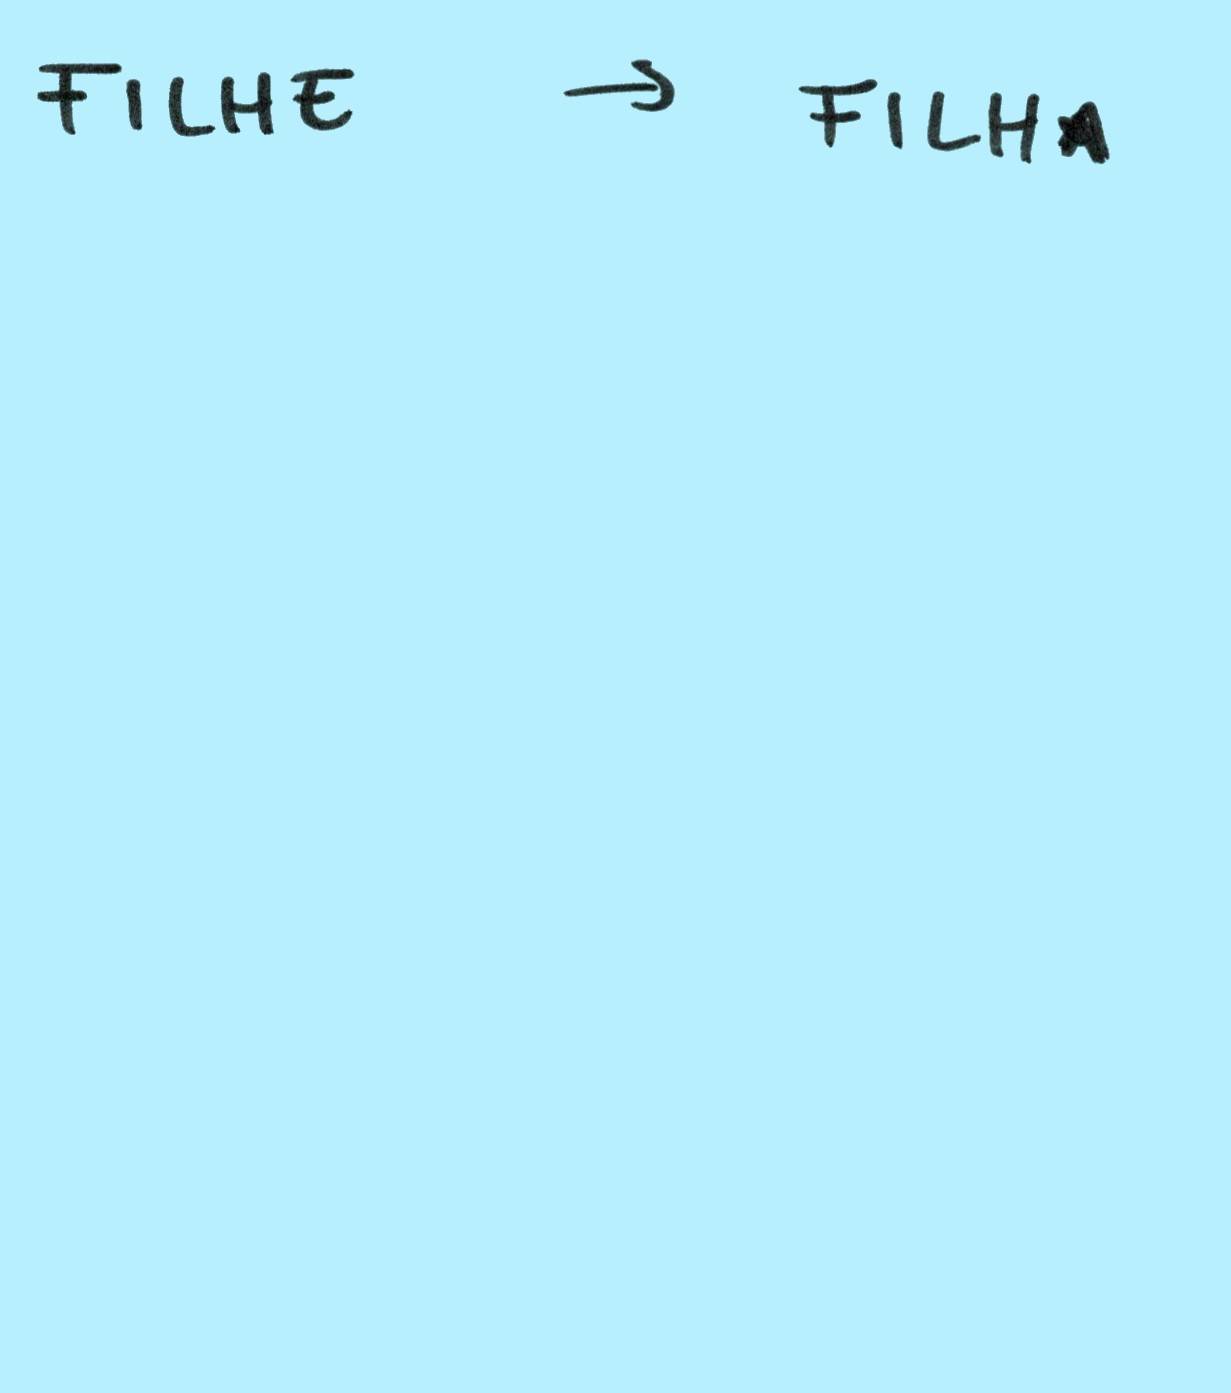 FILHE → FILHA